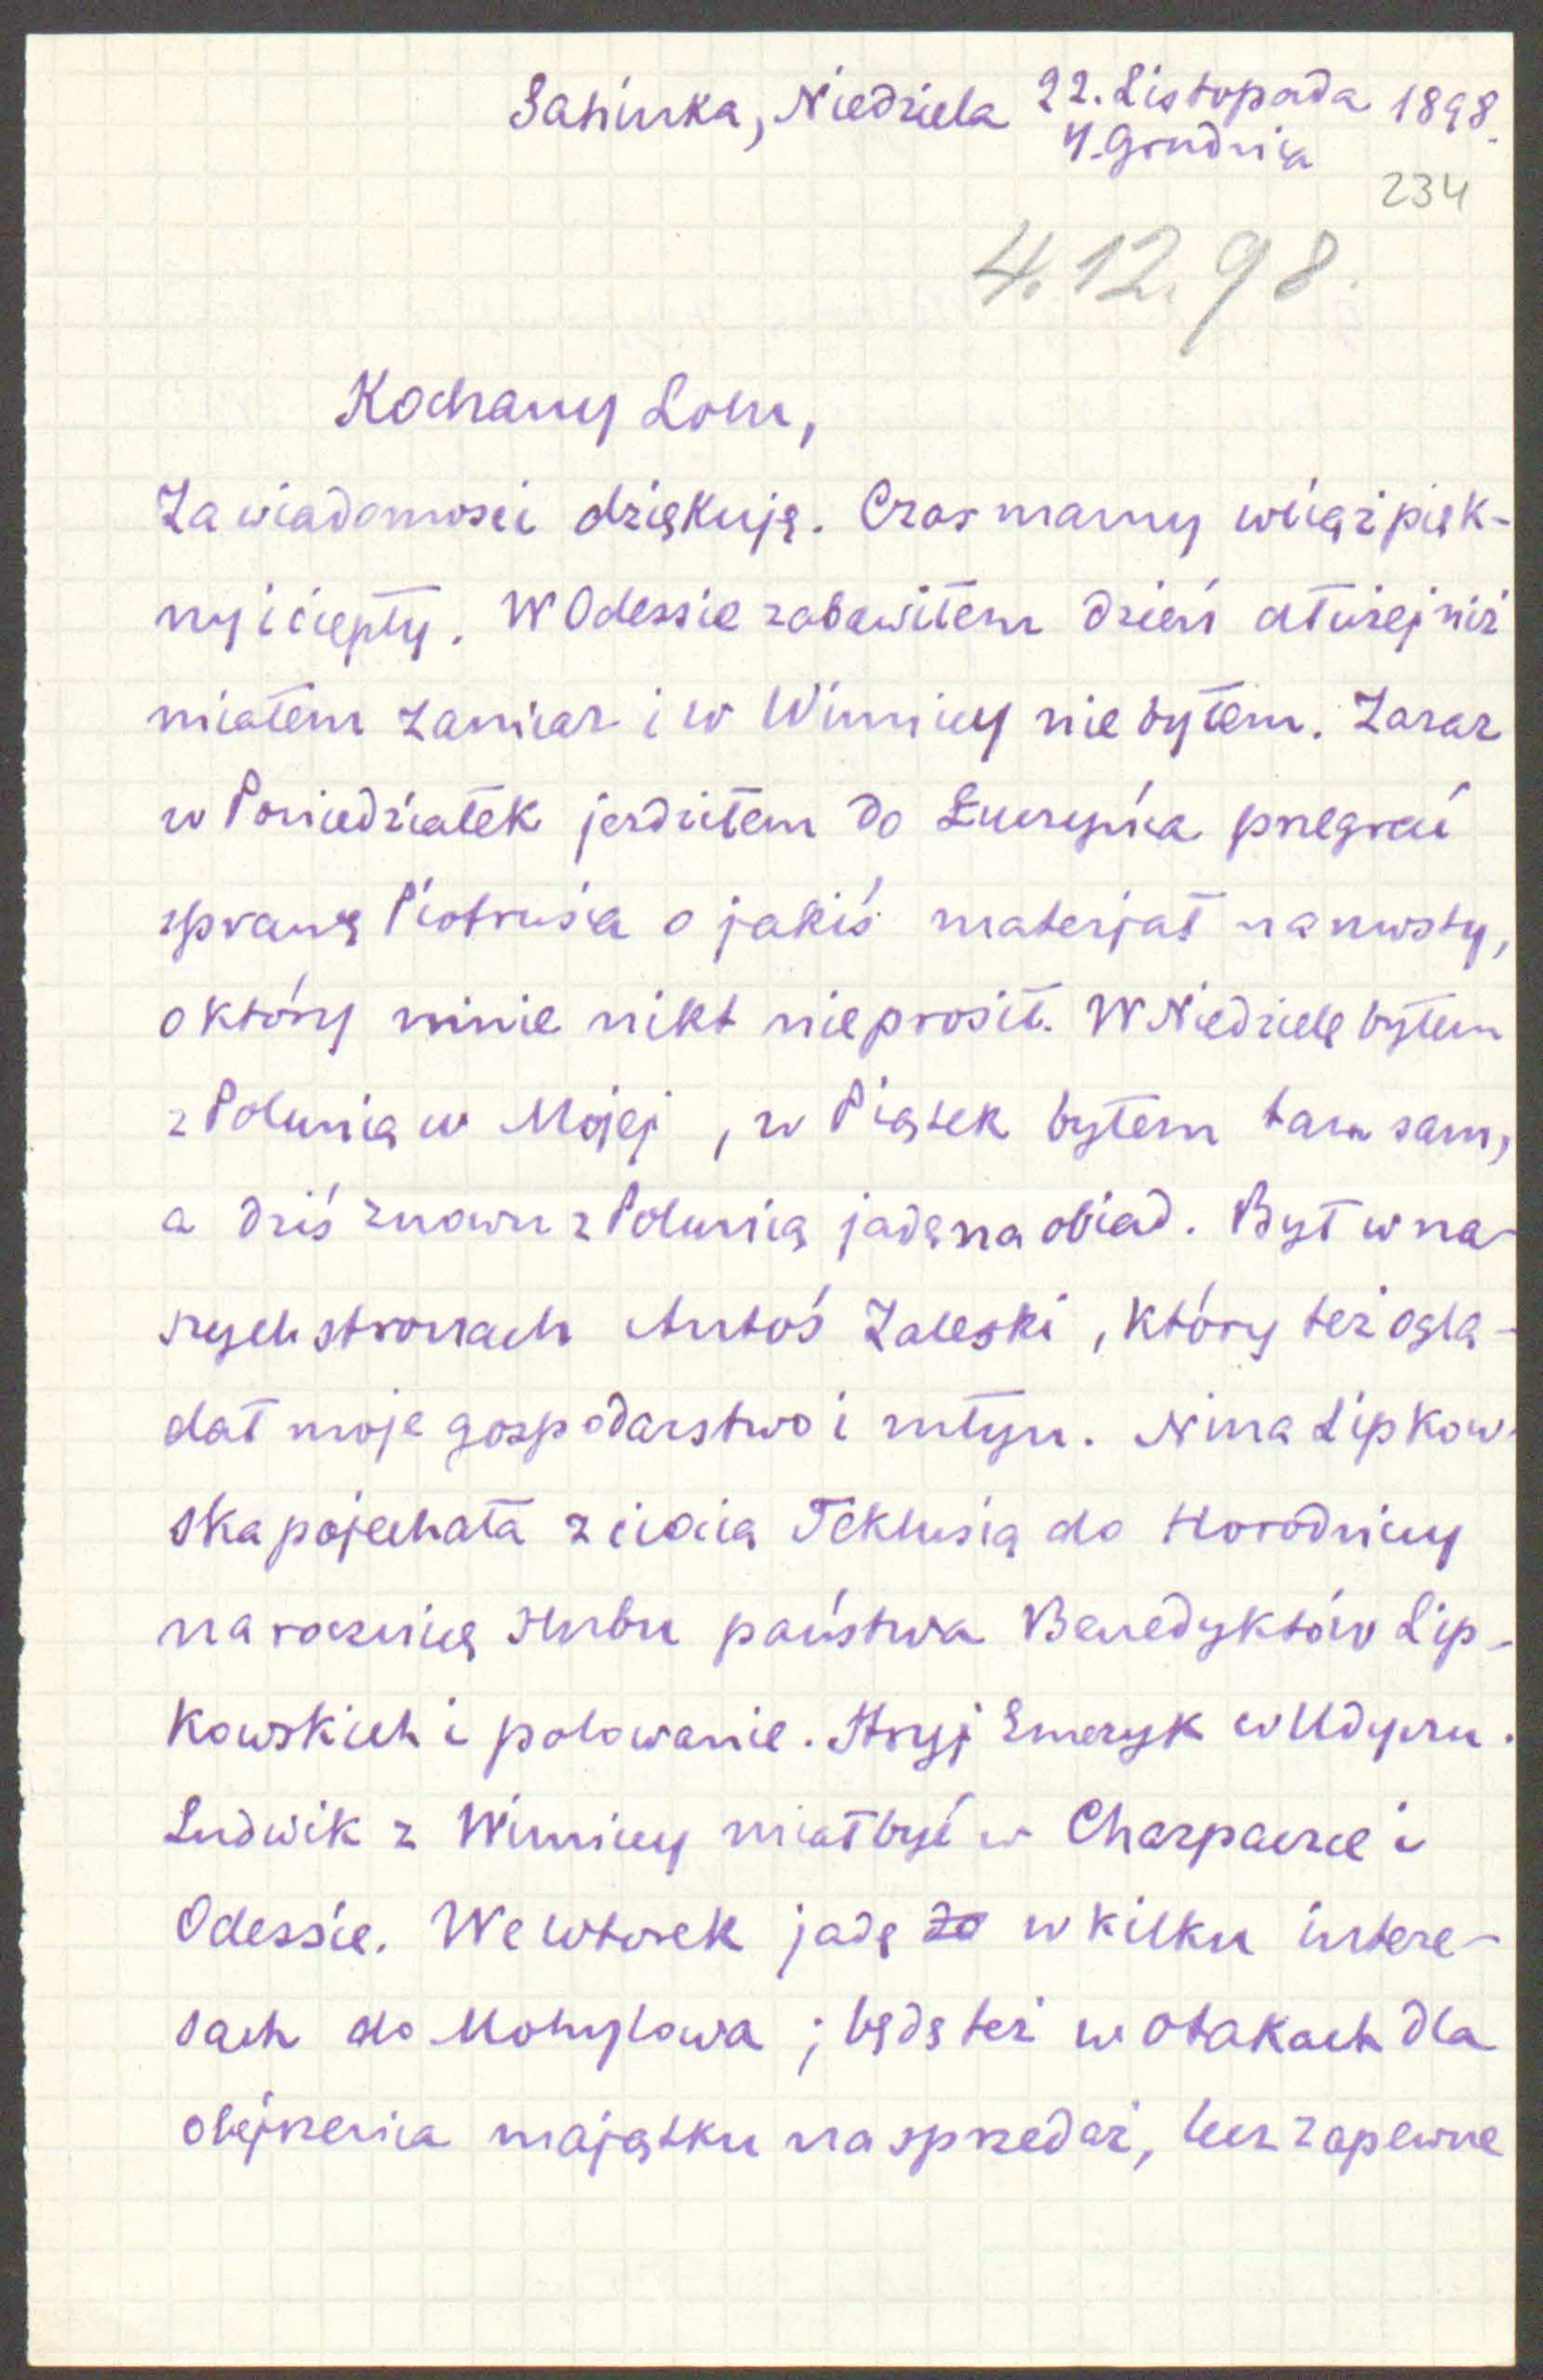 Sahinka, Niedziela 22. Listopada 1898.
4. Grudnia
234
4.12.98.
Kochany Lolu,
Za wiadomości dziękuję. Czas mamy wciąż pięk-
ny i ciepły. W Odessie zabawiłem dzień dłużej niż
miałem zamiar i w Winnicy nie byłem. Zaraz
w Poniedziałek jeździłem do Łuczyńca przegrać
sprawę Piotrusia o jakiś materjał na mosty,
o który mnie nikt nie prosił. W Niedzielę byłem
z Polunią w Mojej, w Piątek byłem tam sam,
a dziś znowu z Polunią jadę na obiad. Był w na-
szych stronach Antoś Zaleski, który też oglą-
dał moje gospodarstwo i młyn. Nina Lipkow-
ska pojechała z ciocią Teklusią do Horodnicy
na rocznicę ślubu państwa Benedyktów Lip-
kowskich i polowanie. Stryj Emeryk w Udyczu.
Ludwik z Winnicy miał być w Charpaczce i
Odessie. We wtorek jadę do w kilku intere-
sach do Mohylowa; będę też w Otakach dla
obejrzenia majątku na sprzedaż, lecz zapewne